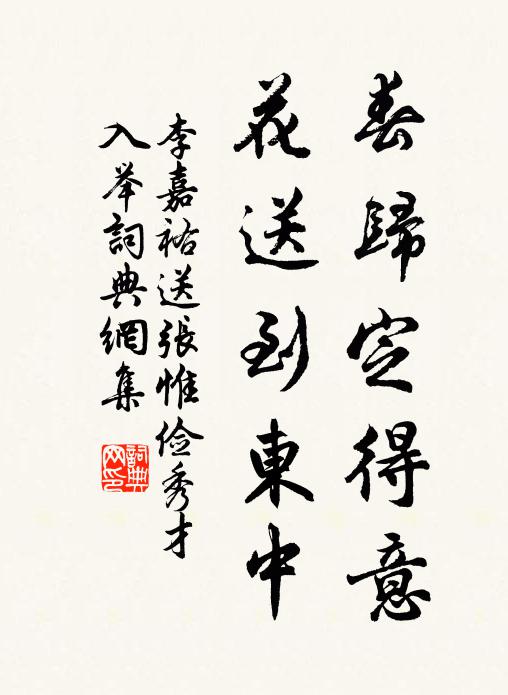 春歸定得意
花送到東中
李嘉祐送張惟儉秀才
入举詞典網集
詞典
网印